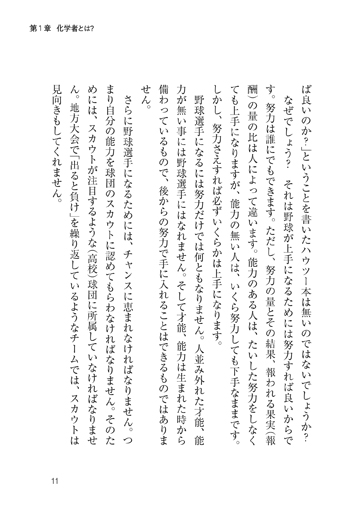 第1章 化学者とは?
ば良いのか?」ということを書いたハウツー本は無いのではないでしょうか?
なぜでしょう? それは野球が上手になるためには努力すれば良いからで
す。努力は誰にでもできます。ただし、努力の量とその結果、報われる果実(報
酬)の量の比は人によって違います。能力のある人は、たいした努力をしなく
ても上手になりますが、能力の無い人は、いくら努力しても下手なままです。
しかし、努力さえすれば必ずいくらかは上手になります。
野球選手になるには努力だけでは何ともなりません。人並み外れた才能、能
力が無い事には野球選手にはなれません。そして才能、能力は生まれた時から
備わっているもので、後からの努力で手に入れることはできるものではありま
せん。
さらに野球選手になるためには、チャンスに恵まれなければなりません。つ
まり自分の能力を球団のスカウトに認めてもらわなければなりません。そのた
めには、スカウトが注目するような(高校)球団に所属していなければなりませ
ん。地方大会で「出ると負け」を繰り返しているようなチームでは、スカウトは
見向きもしてくれません。
11